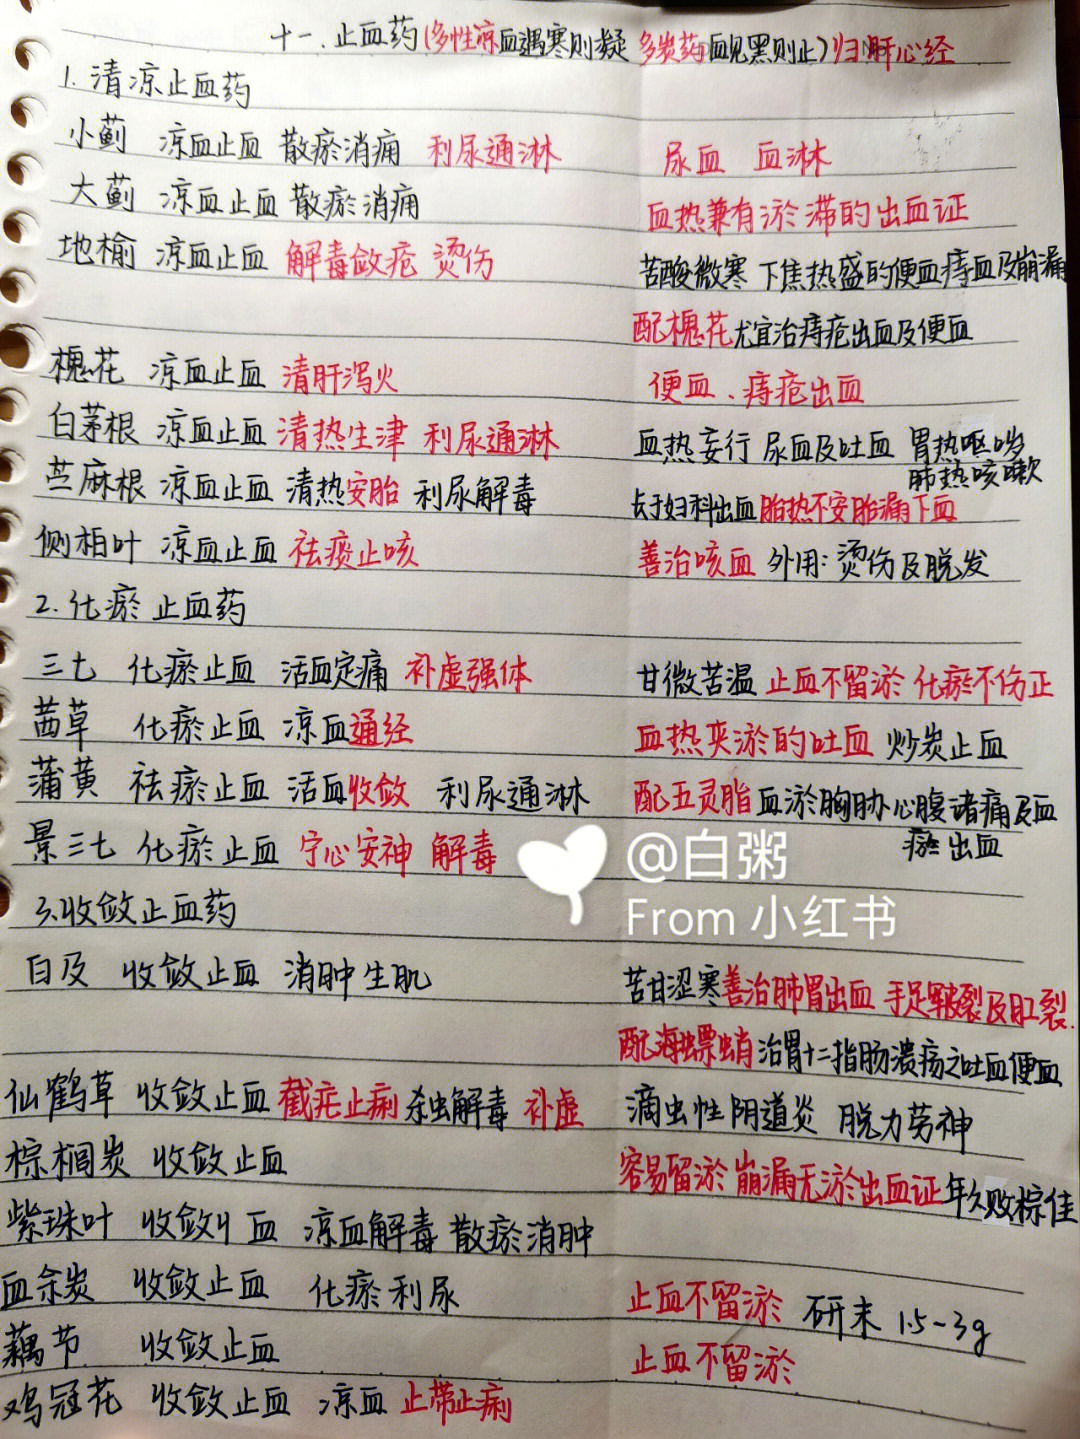 十一.止血药(多性凉血遇寒则凝 多炭药血见黑则止)归肝心经
1.清凉止血药
小蓟 凉血止血 散瘀消痈 利尿通淋 尿血 血淋
大蓟 凉血止血 散瘀消痈 血热兼有淤滞的出血证
地榆 凉血止血 解毒敛疮 烫伤 苦酸微寒 下焦热盛的便血痔血及崩漏
配槐花尤宜治痔疮出血及便血
槐花 凉血止血 清肝泻火 便血、痔疮出血
白茅根 凉血止血 清热生津 利尿通淋 血热妄行 尿血及吐血 胃热呕哕
肺热咳嗽
苎麻根 凉血止血 清热安胎 利尿解毒 长于妇科出血胎热不安胎漏下血
侧柏叶 凉血止血 祛痰止咳 善治咳血 外用:烫伤及脱发
2.化瘀止血药
三七 化瘀止血 活血定痛 补虚强体 甘微苦温 止血不留淤 化瘀不伤正
茜草 化瘀止血 凉血通经 血热夹淤的吐血 炒炭止血
蒲黄 祛瘀止血 活血收敛 利尿通淋 配五灵脂血淤胸胁心腹诸痛及血
瘀出血
景三七 化瘀止血 宁心安神 解毒
@白粥
3.收敛止血药
From 小红书
白及 收敛止血 消肿生肌 苦甘涩寒善治肺胃出血 手足皲裂及肛裂.
配海螵蛸治胃十二指肠溃疡之吐血便血
仙鹤草 收敛止血 截疟止痢 杀虫解毒 补虚 滴虫性阴道炎 脱力劳神
棕榈炭 收敛止血 容易留淤 崩漏无淤出血证年久败棕佳
紫珠叶 收敛 血 凉血解毒 散瘀消肿
血余炭 收敛止血 化瘀利尿 止血不留淤 研末 1.5-3g
藕节 收敛止血 止血不留淤
鸡冠花 收敛止血 凉血 止带止痢